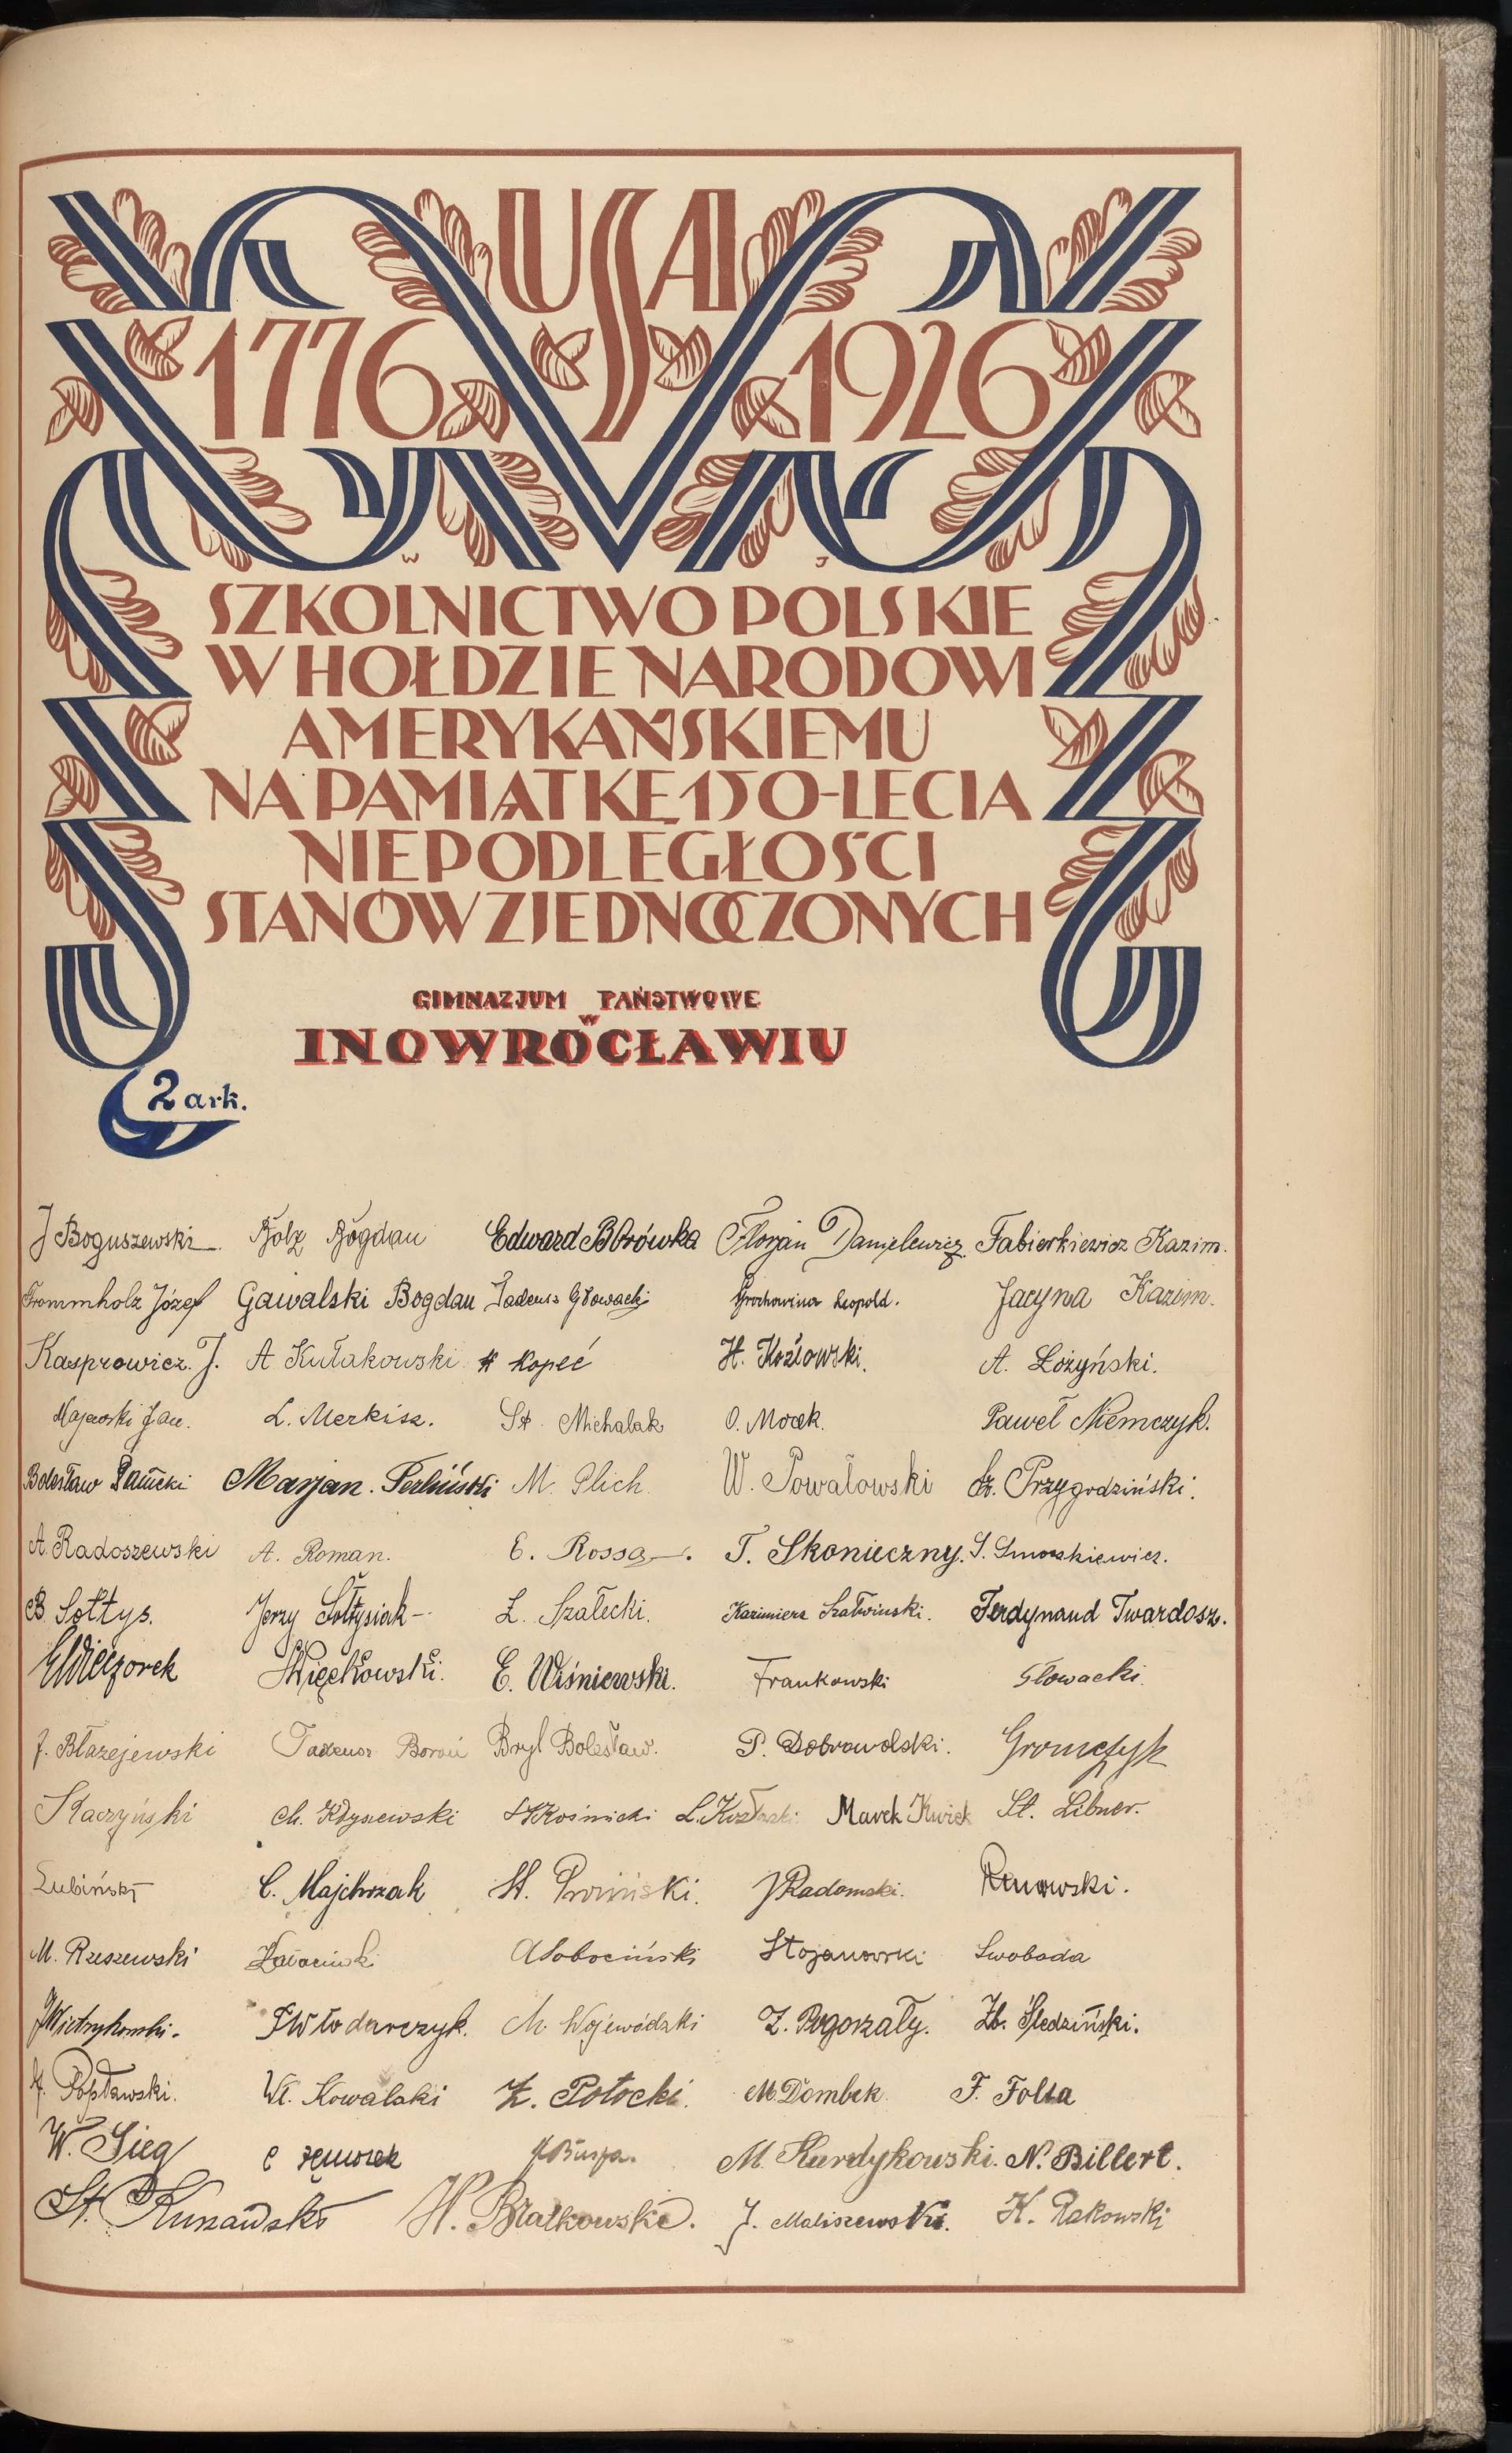 USA
1776 1926
W J
SZKOLNICTWO POLSKIE
W HOŁDZIE NARODOWI
AMERYKAŃSKIEMU
NA PAMIĄTKĘ 150-LECIA
NIEPODLEGŁOŚCI
STANÓW ZJEDNOCZONYCH
GIMNAZJUM PAŃSTWOWE
W
INOWROCŁAWIU
2 ark.
J Boguszewski Bolz Bogdan Edward Borówka Florjan Danielewicz Fabierkiewicz Kazim.
Frommholz Józef Gawalski Bogdan Tadeusz Głowacki Grochowina Leopold. Jacyna Kazim.
Kasprowicz. J. A Kułakowski Kopeć H. Kozłowski. A. Łożyński.
Majewski Jan. L. Merkisz. St. Michalak O. Mocek. Paweł Niemczyk.
Bolesław Marjan. Perliński M. Plich. W. Powałowski Przygodziński.
A. Radoszewski A. Roman. E. Rossa. T. Skonieczny. S. Smoszkiewicz.
B. Sołtys. Jerzy Sołtysiak Z. Szałecki. Kazimierz Szatwiński. Ferdynand Twardosz.
E Wieczorek Więckowski. E. Wiśniewski. Frankowski Słowacki.
J. Błażejewski Tadeusz Boroń Bryl Bolesław. P. Dobrowolski. Gromczyk
Kaczyński Ch. St Kośnicki L. Marek Kwiek St. Libner.
Łubiński C. Majchrzak St. J Radomski.
M. Rzeszewski A Sobociński Stojanowski Swoboda
J Wietrzykowski. Włodarczyk. M. Wojewódzki Z. Pogorzały. Zb. Śledziński.
J. Popławski. Wł. Kowalski Z. Potocki. M. Dombek F. Folta
W. Sieg C M. Kurdykowski. N. Billert.
St. H. Białkowski. J. Maliszewski. K. Rakowski